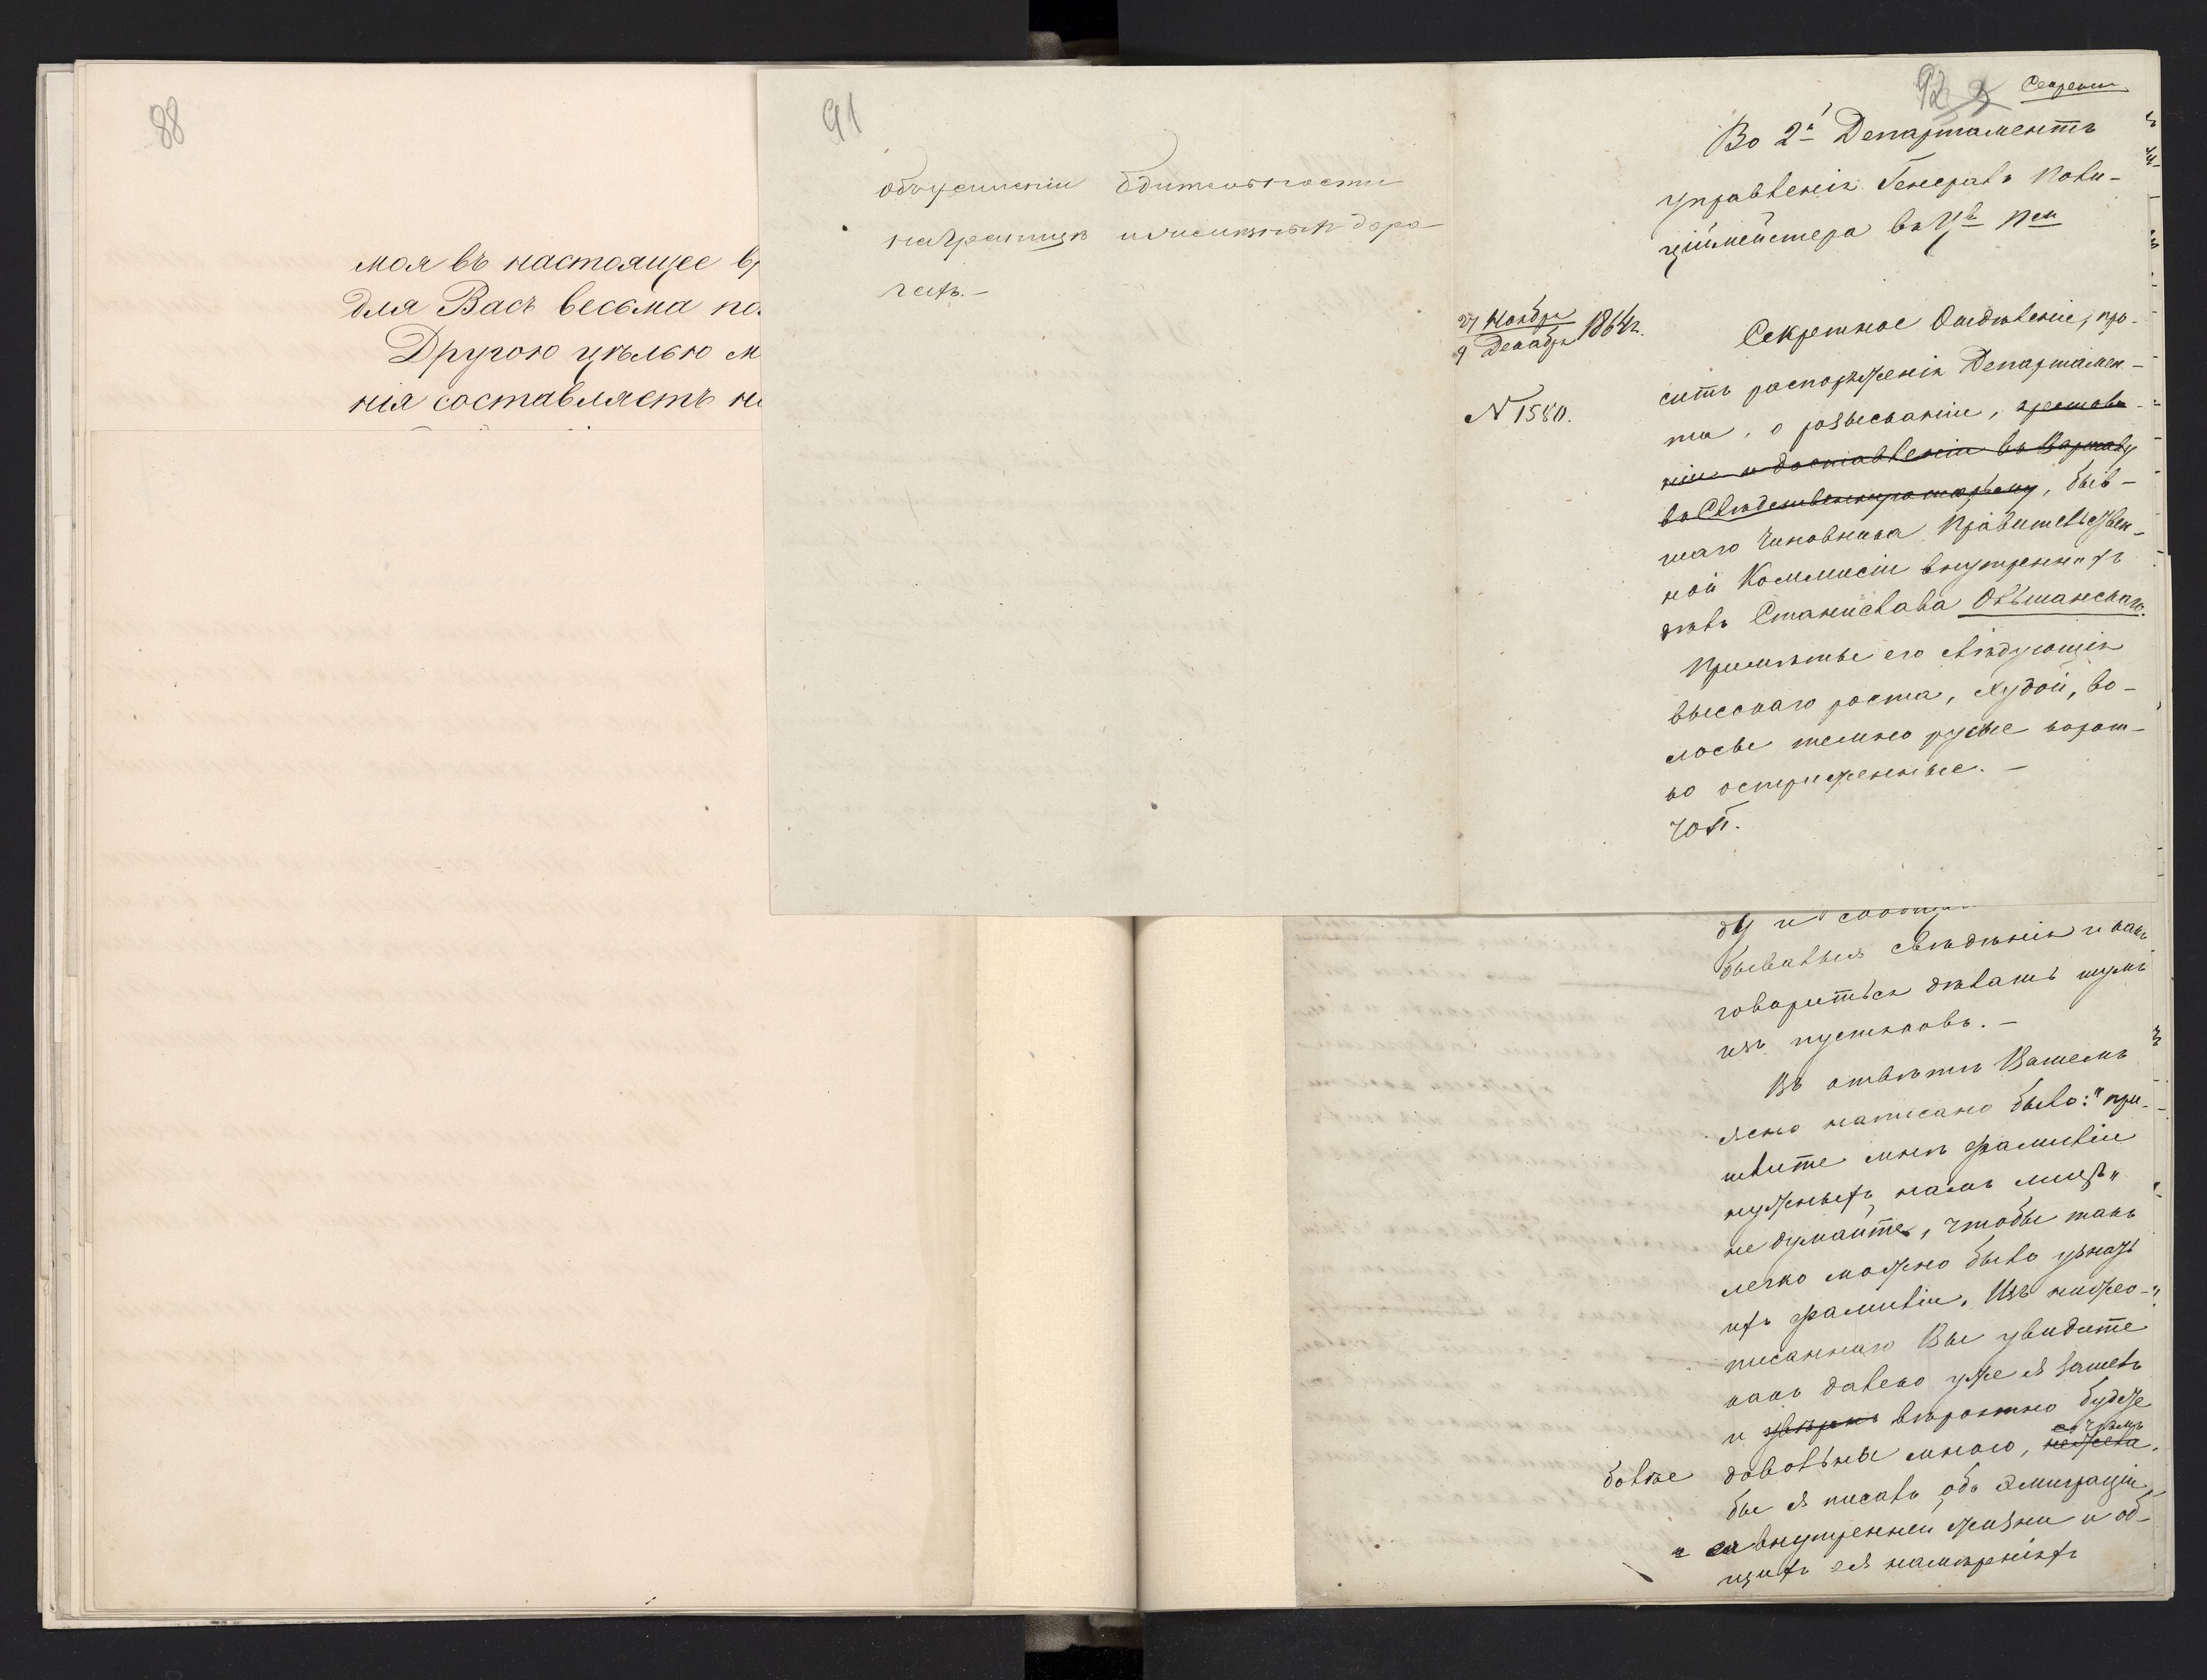 88
моя въ настоящее в
для Васъ весьма по
Другою цѣлью м
нія составляетъ н
91
объусиленіи бдительности
на границѣ и желѣзныхъ доро
гахъ.—
92
Секретно
Во 2й Департаментъ
управленія Генералъ Поли-
ціймейстера въ Цвѣ Пом
27 Ноября
9 Декабря 1864г.
N 1580.
Секретное Отдѣленіе, про-
ситъ распоряженія Департамен-
та, о розысканіи, арестова-
ніи и доставленіи въ Варшаву
въ Слѣдственную тюрьму, быв-
шаго Чиновника Правительствен-
ной Коммисіи внутреннихъ
дѣлъ Станислава Ольшанскаго.
Примѣты его слѣдующія
высокаго роста, худой, во-
лосы темно русые корот-
ко остриженные.—
ду и сообщ
бывалыя свѣдѣнія и какъ
говорится дѣлать шумъ
изъ пустяковъ.—
Въ отвѣтѣ Вашемъ
ясно написано было: "при-
шлите мнѣ фамиліи
нужныхъ намъ лицъ"
не думайте, чтобы такъ
легко можно было узнать
ихъ фамиліи. Изъ нижео-
писаннаго Вы увидите
какъ далеко уже я зашелъ
и увѣренъ вѣроятно будете
болѣе довольны мною, нежели
съ чѣмъ
бы я писалъ объ Эмиграціи
и ея внутренней жизни и об-
щихъ ея намѣреніяхъ